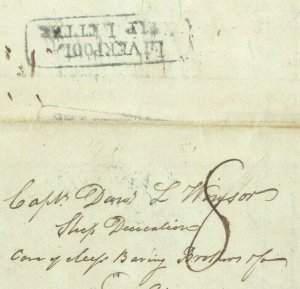 LIVERPOOL
SHIP LETTER
8
Captn Danl L Winsor
Ship
Care of Mess Baring Brothers &Co